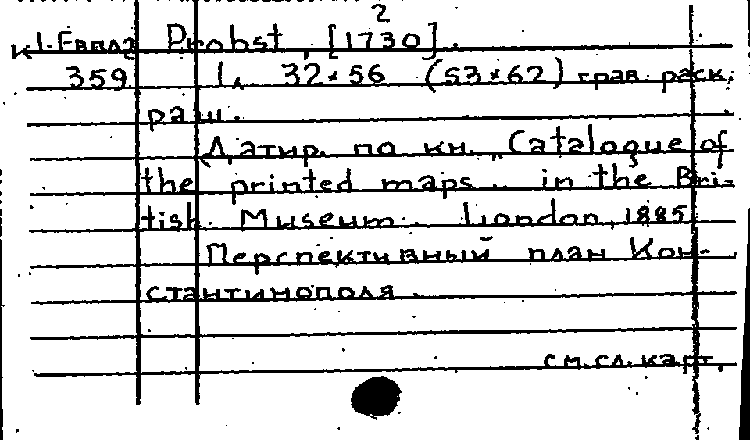 2
К 1-Евпл2 Probst, [1730].
359 1 л. 32×56 (53×62) грав. раск-
раш.
Датир. по кн. „Catalogue of
the printed maps... in the Bri-
tish Museum. London, 1885
Перспективный план Кон-
стантинополя.
см. сл. карт.